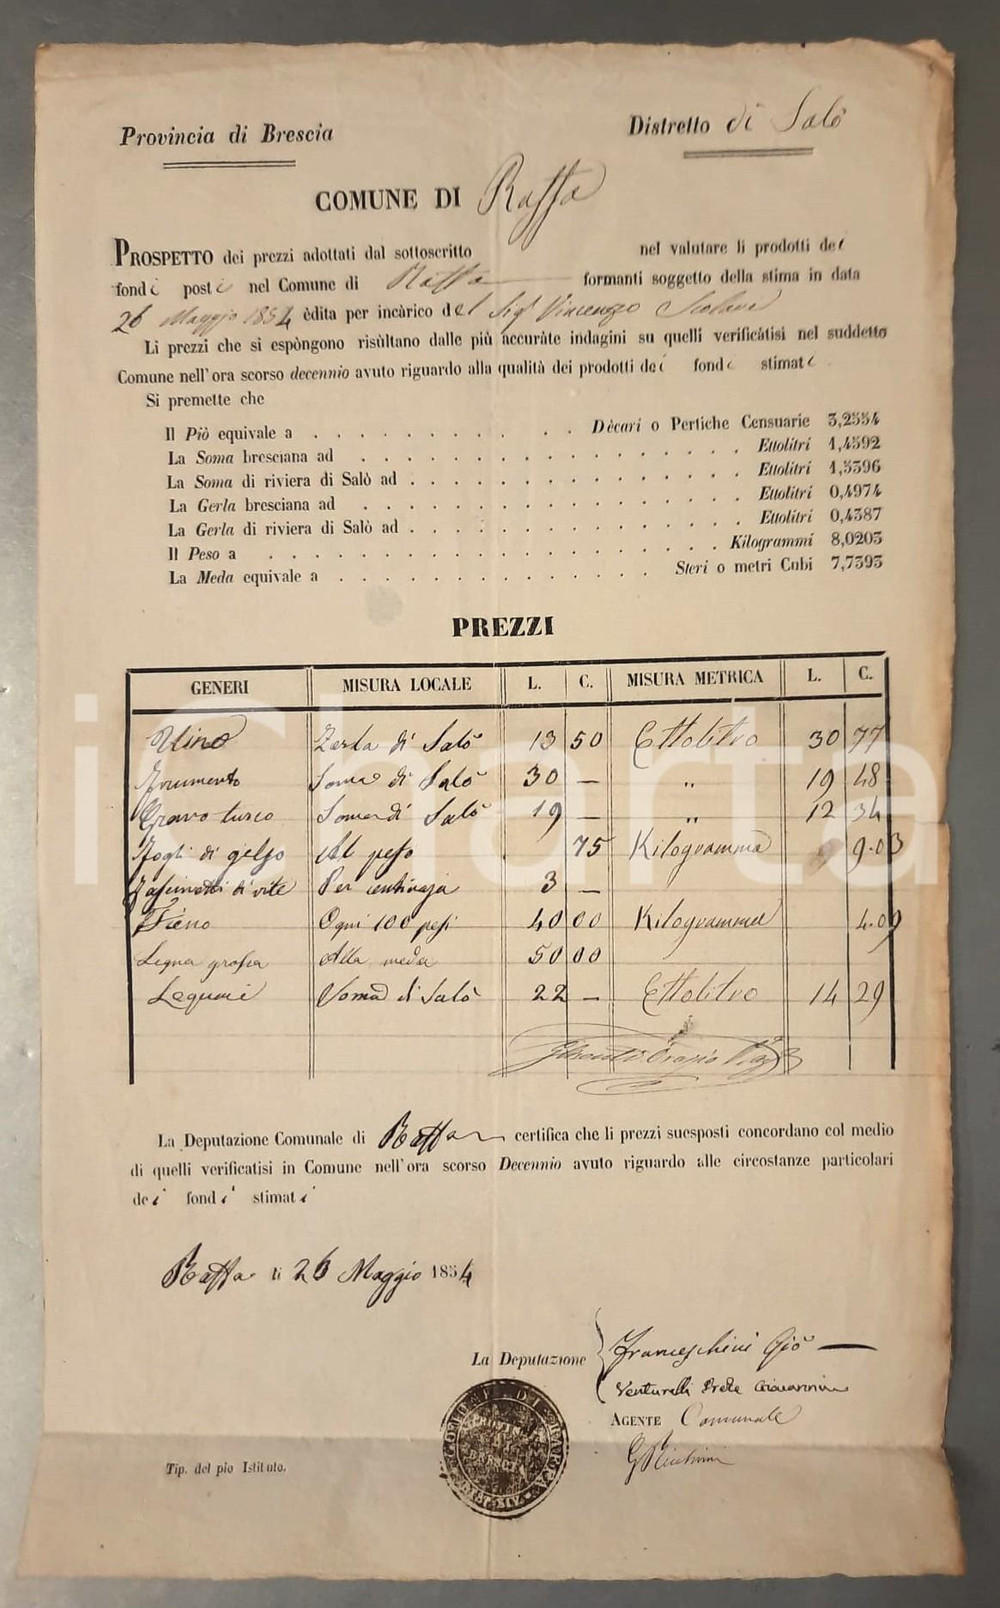 Provincia di Brescia
Distretto di Salò
COMUNE DI Raffa
PROSPETTO dei prezzi adottati dal sottoscritto nel valutare li prodotti dei
fondi posti nel Comune di Raffa formanti soggetto della stima in data
26 Maggio 1854 èdita per incàrico del Sigr Vincenzo
Li prezzi che si espòngono risùltano dalle più accuràte indagini su quelli verificàtisi nel suddetto
Comune nell'ora scorso decennio avuto riguardo alla qualità dei prodotti dei fondi stimati
Si premette che
Il Piò equivale a . . . . . Dècari o Pertiche Censuarie 3,2554
La Soma bresciana ad . . . . . Ettolitri 1,4592
La Soma di riviera di Salò ad . . . . . Ettolitri 1,5396
La Gerla bresciana ad . . . . . Ettolitri 0,4974
La Gerla di riviera di Salò ad . . . . . Ettolitri 0,4387
Il Peso a . . . . . Kilogrammi 8,0203
La Meda equivale a . . . . . Steri o metri Cubi 7,7393
PREZZI
GENERI MISURA LOCALE L. C. MISURA METRICA L. C.
Vino Zerla di Salò 13 50 Ettolitro 30 77
Frumento Soma di Salò 30 — " 19 48
Grano turco Soma di Salò 19 — " 12 34
Fogli di gelso Al peso 75 Kilogramma 9.03
di vite Per centinaja 3 —
Fieno Ogni 100 pesi 40 00 Kilogramma 4.09
Legna grossa Alla meda 50 00
Legumi Soma di Salò 22 — Ettolitro 14 29
Orazio
La Deputazione Comunale di Raffa certifica che li prezzi suesposti concordano col medio
di quelli verificatisi in Comune nell'ora scorso Decennio avuto riguardo alle circostanze particolari
dei fondi stimati
Raffa li 26 Maggio 1854
La Deputazione
Franceschini Giò
Venturelli Prete Giovanni
AGENTE Comunale
COMUNE DI RAFFA
Tip. del pio Istituto.
iCharta